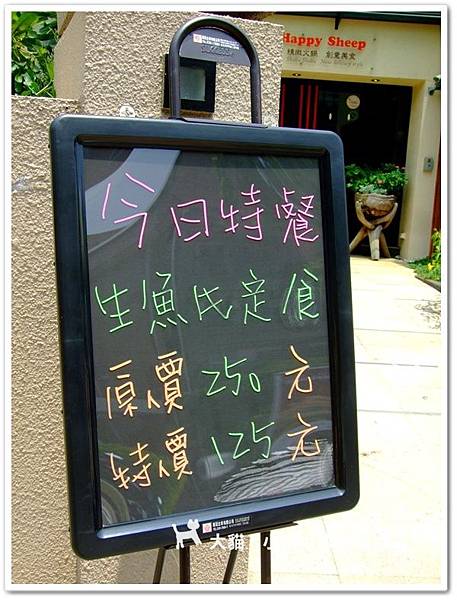 Happy Sheep
精緻火鍋 創意美食
今日特餐
生魚氏定食
原價 250 元
特價 125 元
大貓 小